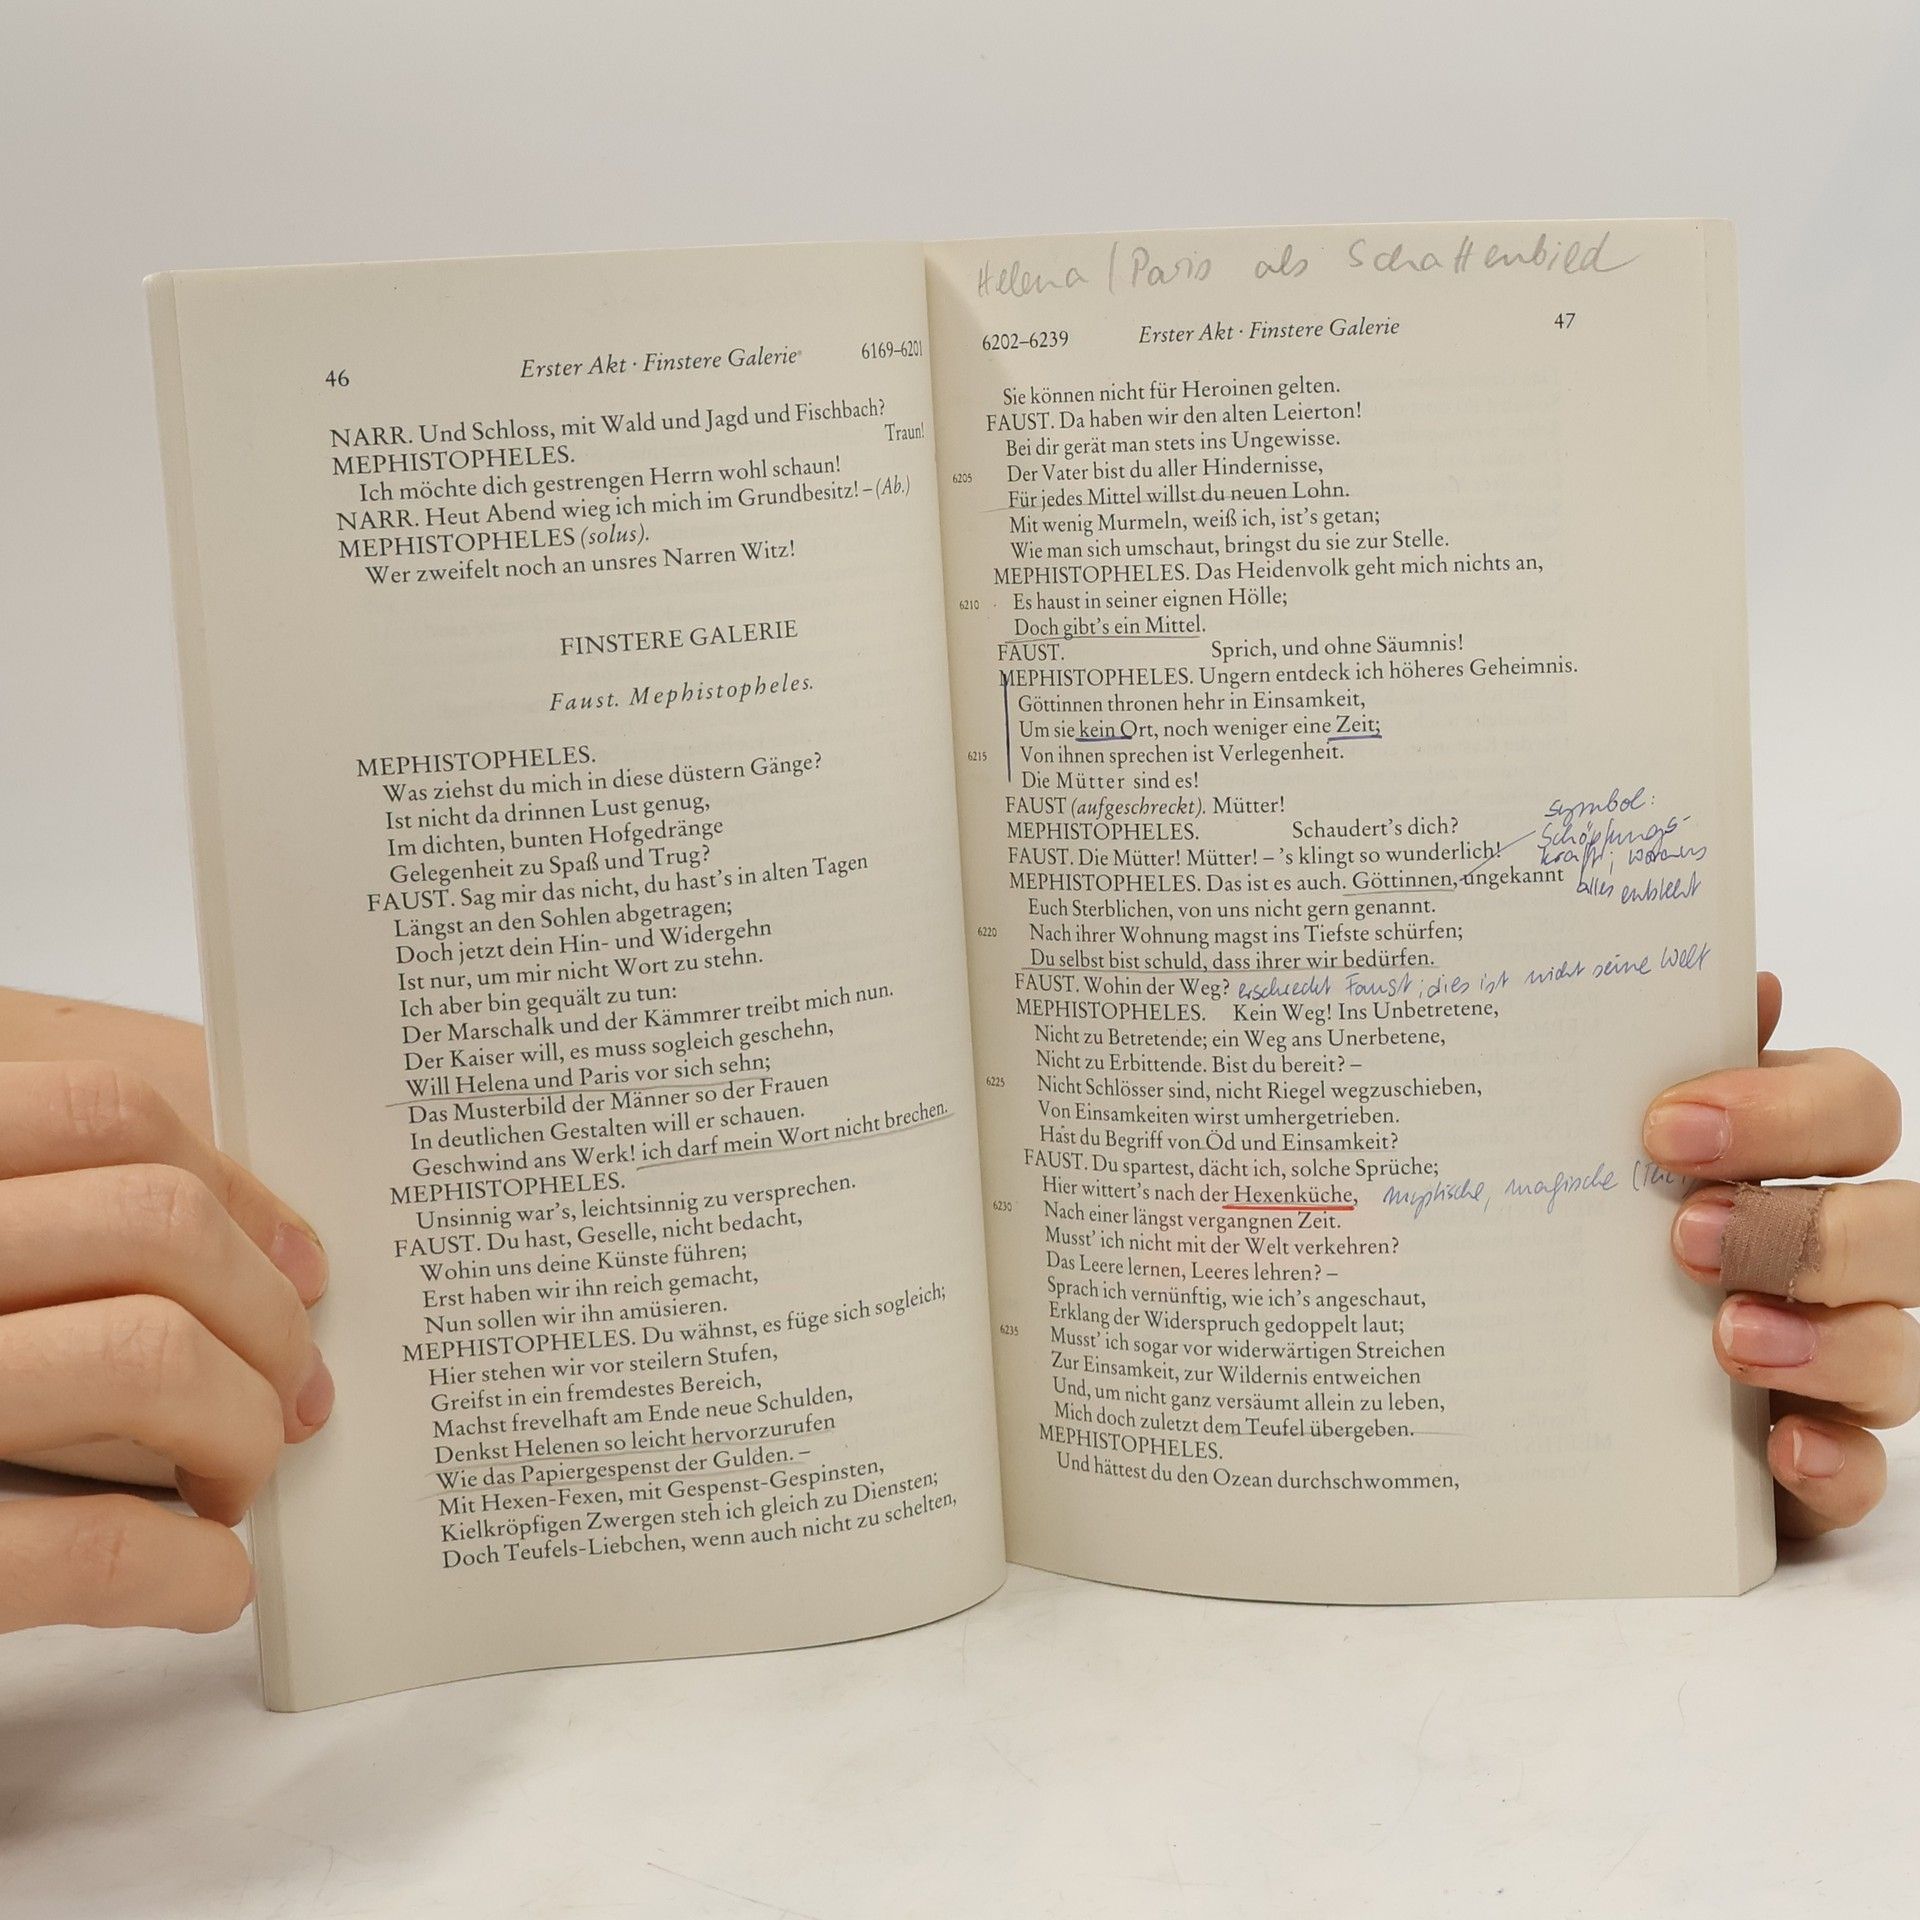 46 Erster Akt · Finstere Galerie 6169–6201
NARR. Und Schloss, mit Wald und Jagd und Fischbach?
MEPHISTOPHELES. Traun!
Ich möchte dich gestrengen Herrn wohl schaun!
NARR. Heut Abend wieg ich mich im Grundbesitz! – (Ab.)
MEPHISTOPHELES (solus).
Wer zweifelt noch an unsres Narren Witz!
FINSTERE GALERIE
Faust. Mephistopheles.
MEPHISTOPHELES.
Was ziehst du mich in diese düstern Gänge?
Ist nicht da drinnen Lust genug,
Im dichten, bunten Hofgedränge
Gelegenheit zu Spaß und Trug?
FAUST. Sag mir das nicht, du hast's in alten Tagen
Längst an den Sohlen abgetragen;
Doch jetzt dein Hin- und Widergehn
Ist nur, um mir nicht Wort zu stehn.
Ich aber bin gequält zu tun:
Der Marschalk und der Kämmrer treibt mich nun.
Der Kaiser will, es muss sogleich geschehn,
Will Helena und Paris vor sich sehn;
Das Musterbild der Männer so der Frauen
In deutlichen Gestalten will er schauen.
Geschwind ans Werk! ich darf mein Wort nicht brechen.
MEPHISTOPHELES.
Unsinnig war's, leichtsinnig zu versprechen.
FAUST. Du hast, Geselle, nicht bedacht,
Wohin uns deine Künste führen;
Erst haben wir ihn reich gemacht,
Nun sollen wir ihn amüsieren.
MEPHISTOPHELES. Du wähnst, es füge sich sogleich;
Hier stehen wir vor steilern Stufen,
Greifst in ein fremdestes Bereich,
Machst frevelhaft am Ende neue Schulden,
Denkst Helenen so leicht hervorzurufen
Wie das Papiergespenst der Gulden. –
Mit Hexen-Fexen, mit Gespenst-Gespinsten,
Kielkröpfigen Zwergen steh ich gleich zu Diensten;
Doch Teufels-Liebchen, wenn auch nicht zu schelten,
Helena / Paris als Schattenbild
6202–6239 Erster Akt · Finstere Galerie 47
Sie können nicht für Heroinen gelten.
FAUST. Da haben wir den alten Leierton!
Bei dir gerät man stets ins Ungewisse.
6205 Der Vater bist du aller Hindernisse,
Für jedes Mittel willst du neuen Lohn.
Mit wenig Murmeln, weiß ich, ist's getan;
Wie man sich umschaut, bringst du sie zur Stelle.
MEPHISTOPHELES. Das Heidenvolk geht mich nichts an,
6210 Es haust in seiner eignen Hölle;
Doch gibt's ein Mittel.
FAUST. Sprich, und ohne Säumnis!
MEPHISTOPHELES. Ungern entdeck ich höheres Geheimnis.
Göttinnen thronen hehr in Einsamkeit,
Um sie kein Ort, noch weniger eine Zeit;
6215 Von ihnen sprechen ist Verlegenheit.
Die Mütter sind es!
FAUST (aufgeschreckt). Mütter!
MEPHISTOPHELES. Schaudert's dich?
FAUST. Die Mütter! Mütter! – 's klingt so wunderlich!
MEPHISTOPHELES. Das ist es auch. Göttinnen, ungekannt
Symbol:
Schöpfungs-
kraft; woraus
alles entsteht
Euch Sterblichen, von uns nicht gern genannt.
6220 Nach ihrer Wohnung magst ins Tiefste schürfen;
Du selbst bist schuld, dass ihrer wir bedürfen.
FAUST. Wohin der Weg? erschreckt Faust; dies ist nicht seine Welt
MEPHISTOPHELES. Kein Weg! Ins Unbetretene,
Nicht zu Betretende; ein Weg ans Unerbetene,
Nicht zu Erbittende. Bist du bereit? –
6225 Nicht Schlösser sind, nicht Riegel wegzuschieben,
Von Einsamkeiten wirst umhergetrieben.
Hast du Begriff von Öd und Einsamkeit?
FAUST. Du spartest, dächt ich, solche Sprüche;
Hier wittert's nach der Hexenküche, mystische, magische
6230 Nach einer längst vergangnen Zeit.
Musst' ich nicht mit der Welt verkehren?
Das Leere lernen, Leeres lehren? –
Sprach ich vernünftig, wie ich's angeschaut,
Erklang der Widerspruch gedoppelt laut;
6235 Musst' ich sogar vor widerwärtigen Streichen
Zur Einsamkeit, zur Wildernis entweichen
Und, um nicht ganz versäumt allein zu leben,
Mich doch zuletzt dem Teufel übergeben.
MEPHISTOPHELES.
Und hättest du den Ozean durchschwommen,